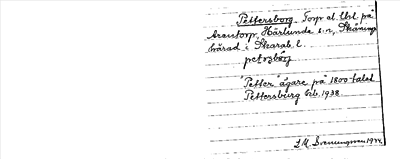 Pettersborg Torp el. lht. på
Arentorp, Härlunda s:n, Skånings
härad i Skarab. l.
petəʒbårj
"Petter" ägare på 1800 talet
Pettersburg Gtb. 1938
L M. Svenungsson 1944.